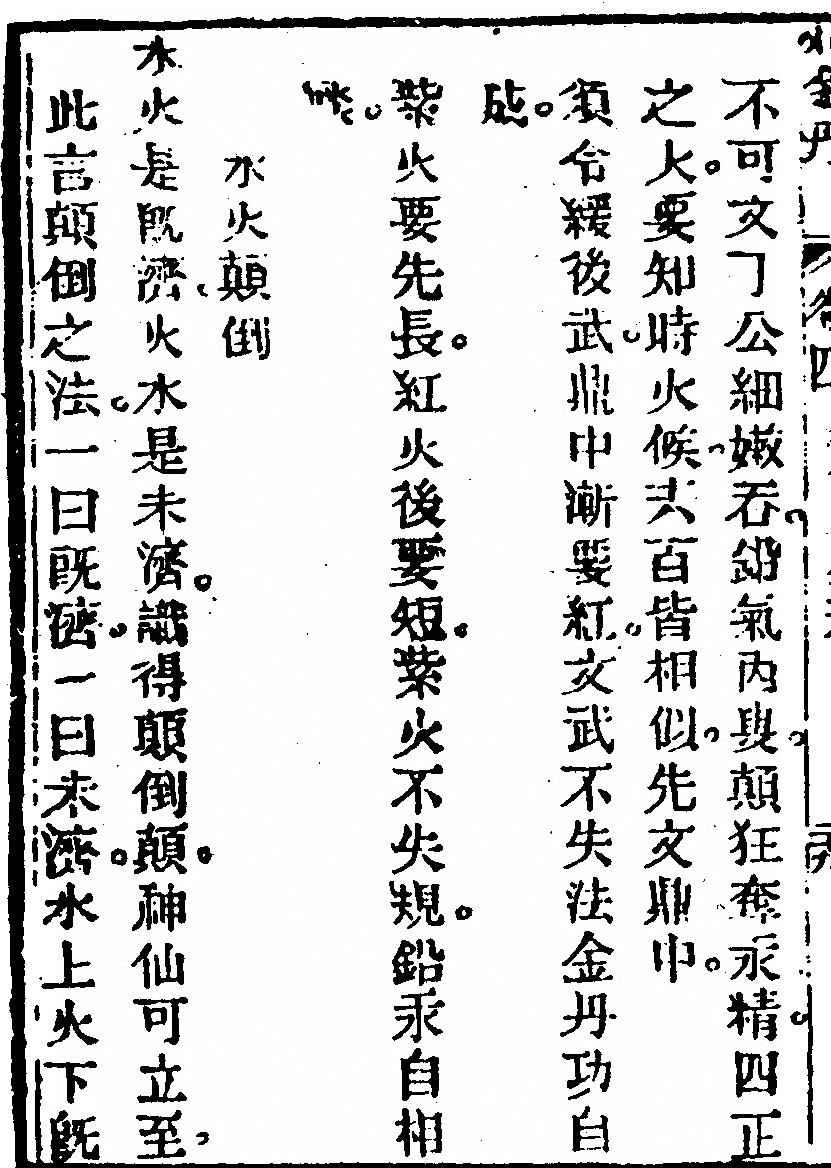 不可文丁公細嫩吞鉛氣內叟顛狂奪汞精四正
之火。要知時火候六百皆相似。先文鼎中。
須令緩後武。鼎中漸要紅。文武不失法金丹功自
成。
紫火要先長。紅火後要短。紫火不失規。鉛汞自相
水火顛倒
水火是既濟。火水是未濟。識得顛倒顛。神仙可立至。
此言顛倒之法。一曰既濟。一曰未濟。水上火下既